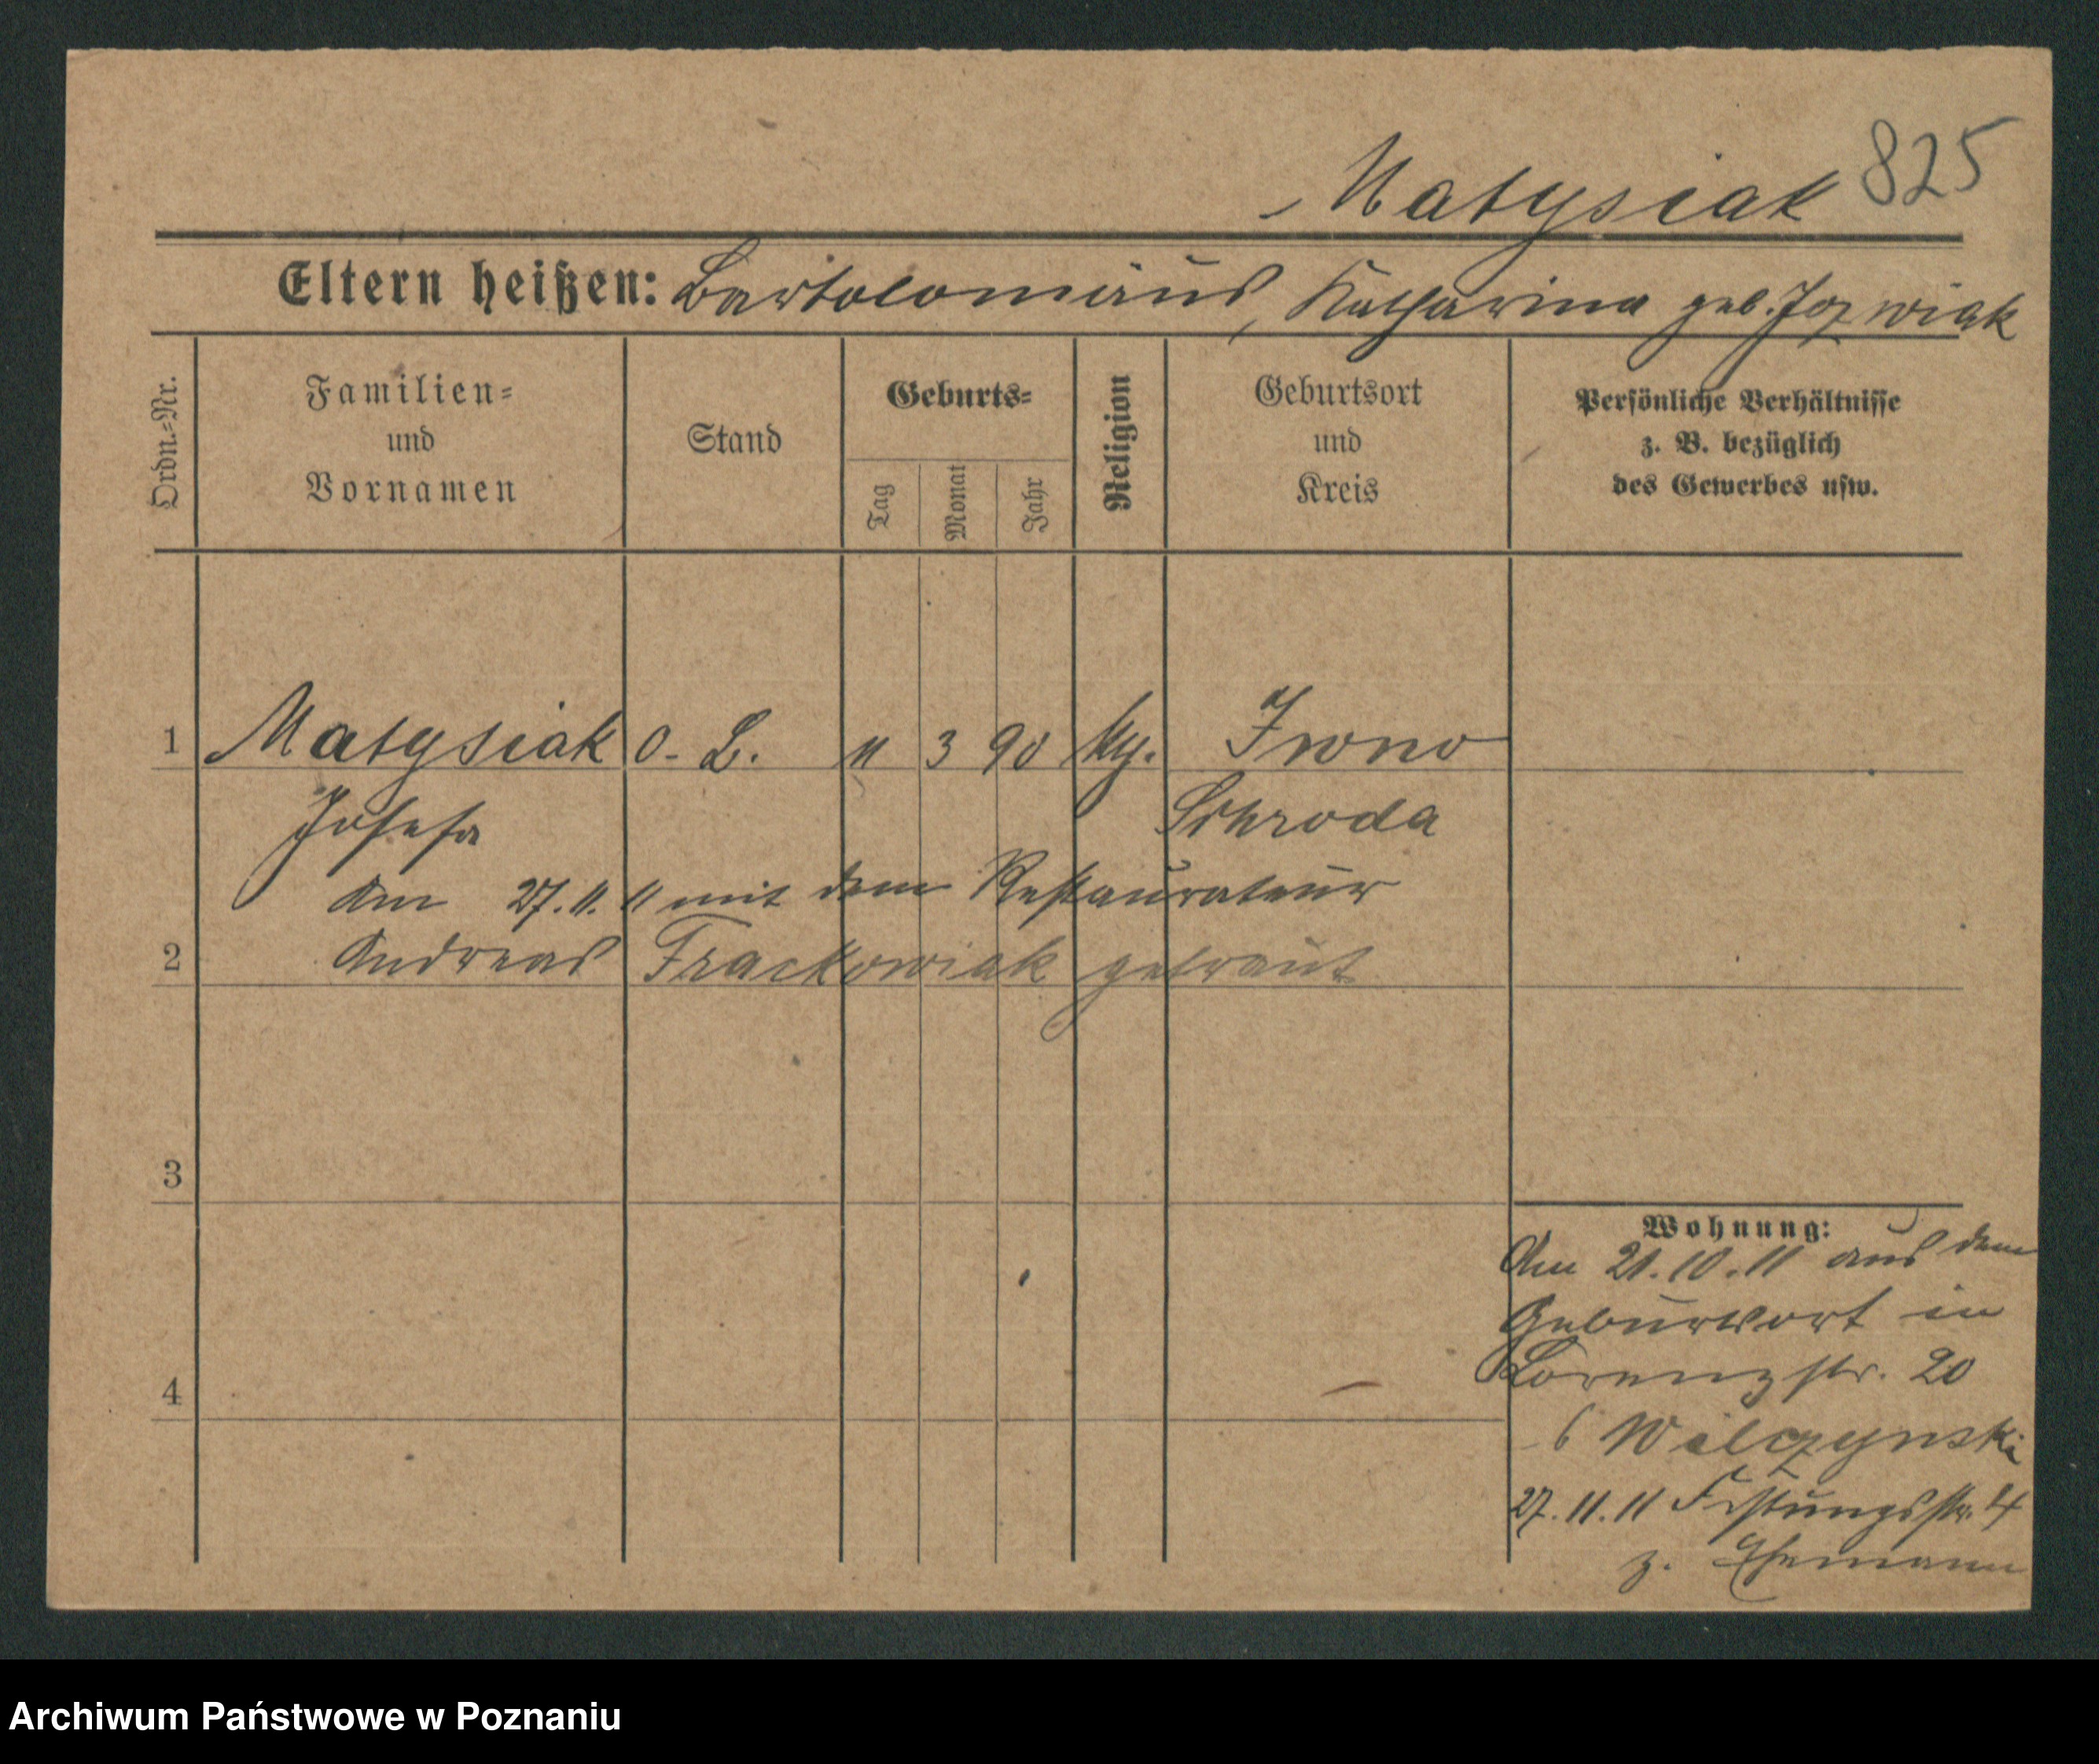 Matysiak 825
Eltern heißen: Bartolomäus, Katharina geb. Jozwiak
Ordn.-Nr.
Familien-
und
Vornamen
Stand
Geburts-
Tag
Monat
Jahr
Religion
Geburtsort
und
Kreis
Persönliche Verhältnisse
z. B. bezüglich
des Gewerbes usw.
1 Matysiak O. L. 11 3 90 Iwno
Josefa Schroda
Am 27.11.11 mit dem Restaurateur
2 Andreas Frackowiak getraut
3
4
Wohnung:
Am 21.10.11 aus dem
Geburtsort in
Lorenzstr. 20
b Wilczynski
27.11.11 Festungsstr. 4
z. Ehemann
Archiwum Państwowe w Poznaniu